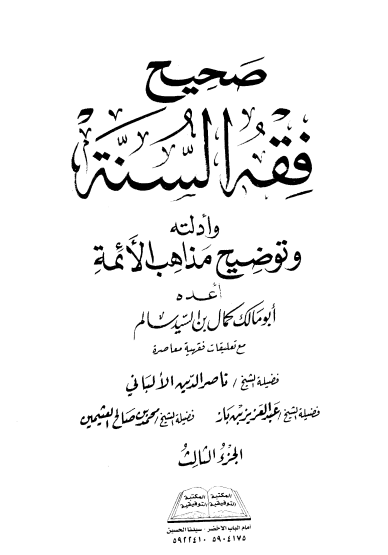 صَحِيح
فِقْهُ السُّنَّة
وأدلته
وتوضيح مَذاهب الأئمة
أعده
أبو مالك كمال بن السيد سالم
مع تعليقات فقهية معاصرة
فضيلة الشيخ/ ناصر الدين الألباني
فضيلة الشيخ/ عبد العزيز بن باز فضيلة الشيخ/ محمد بن صالح العثيمين
الجزء الثالث
المكتبة التوفيقية المكتبة التوفيقية
أمام الباب الأخضر - سيدنا الحسين
٥٩٠٤١٧٥ ٥٩٢٢٤١٠